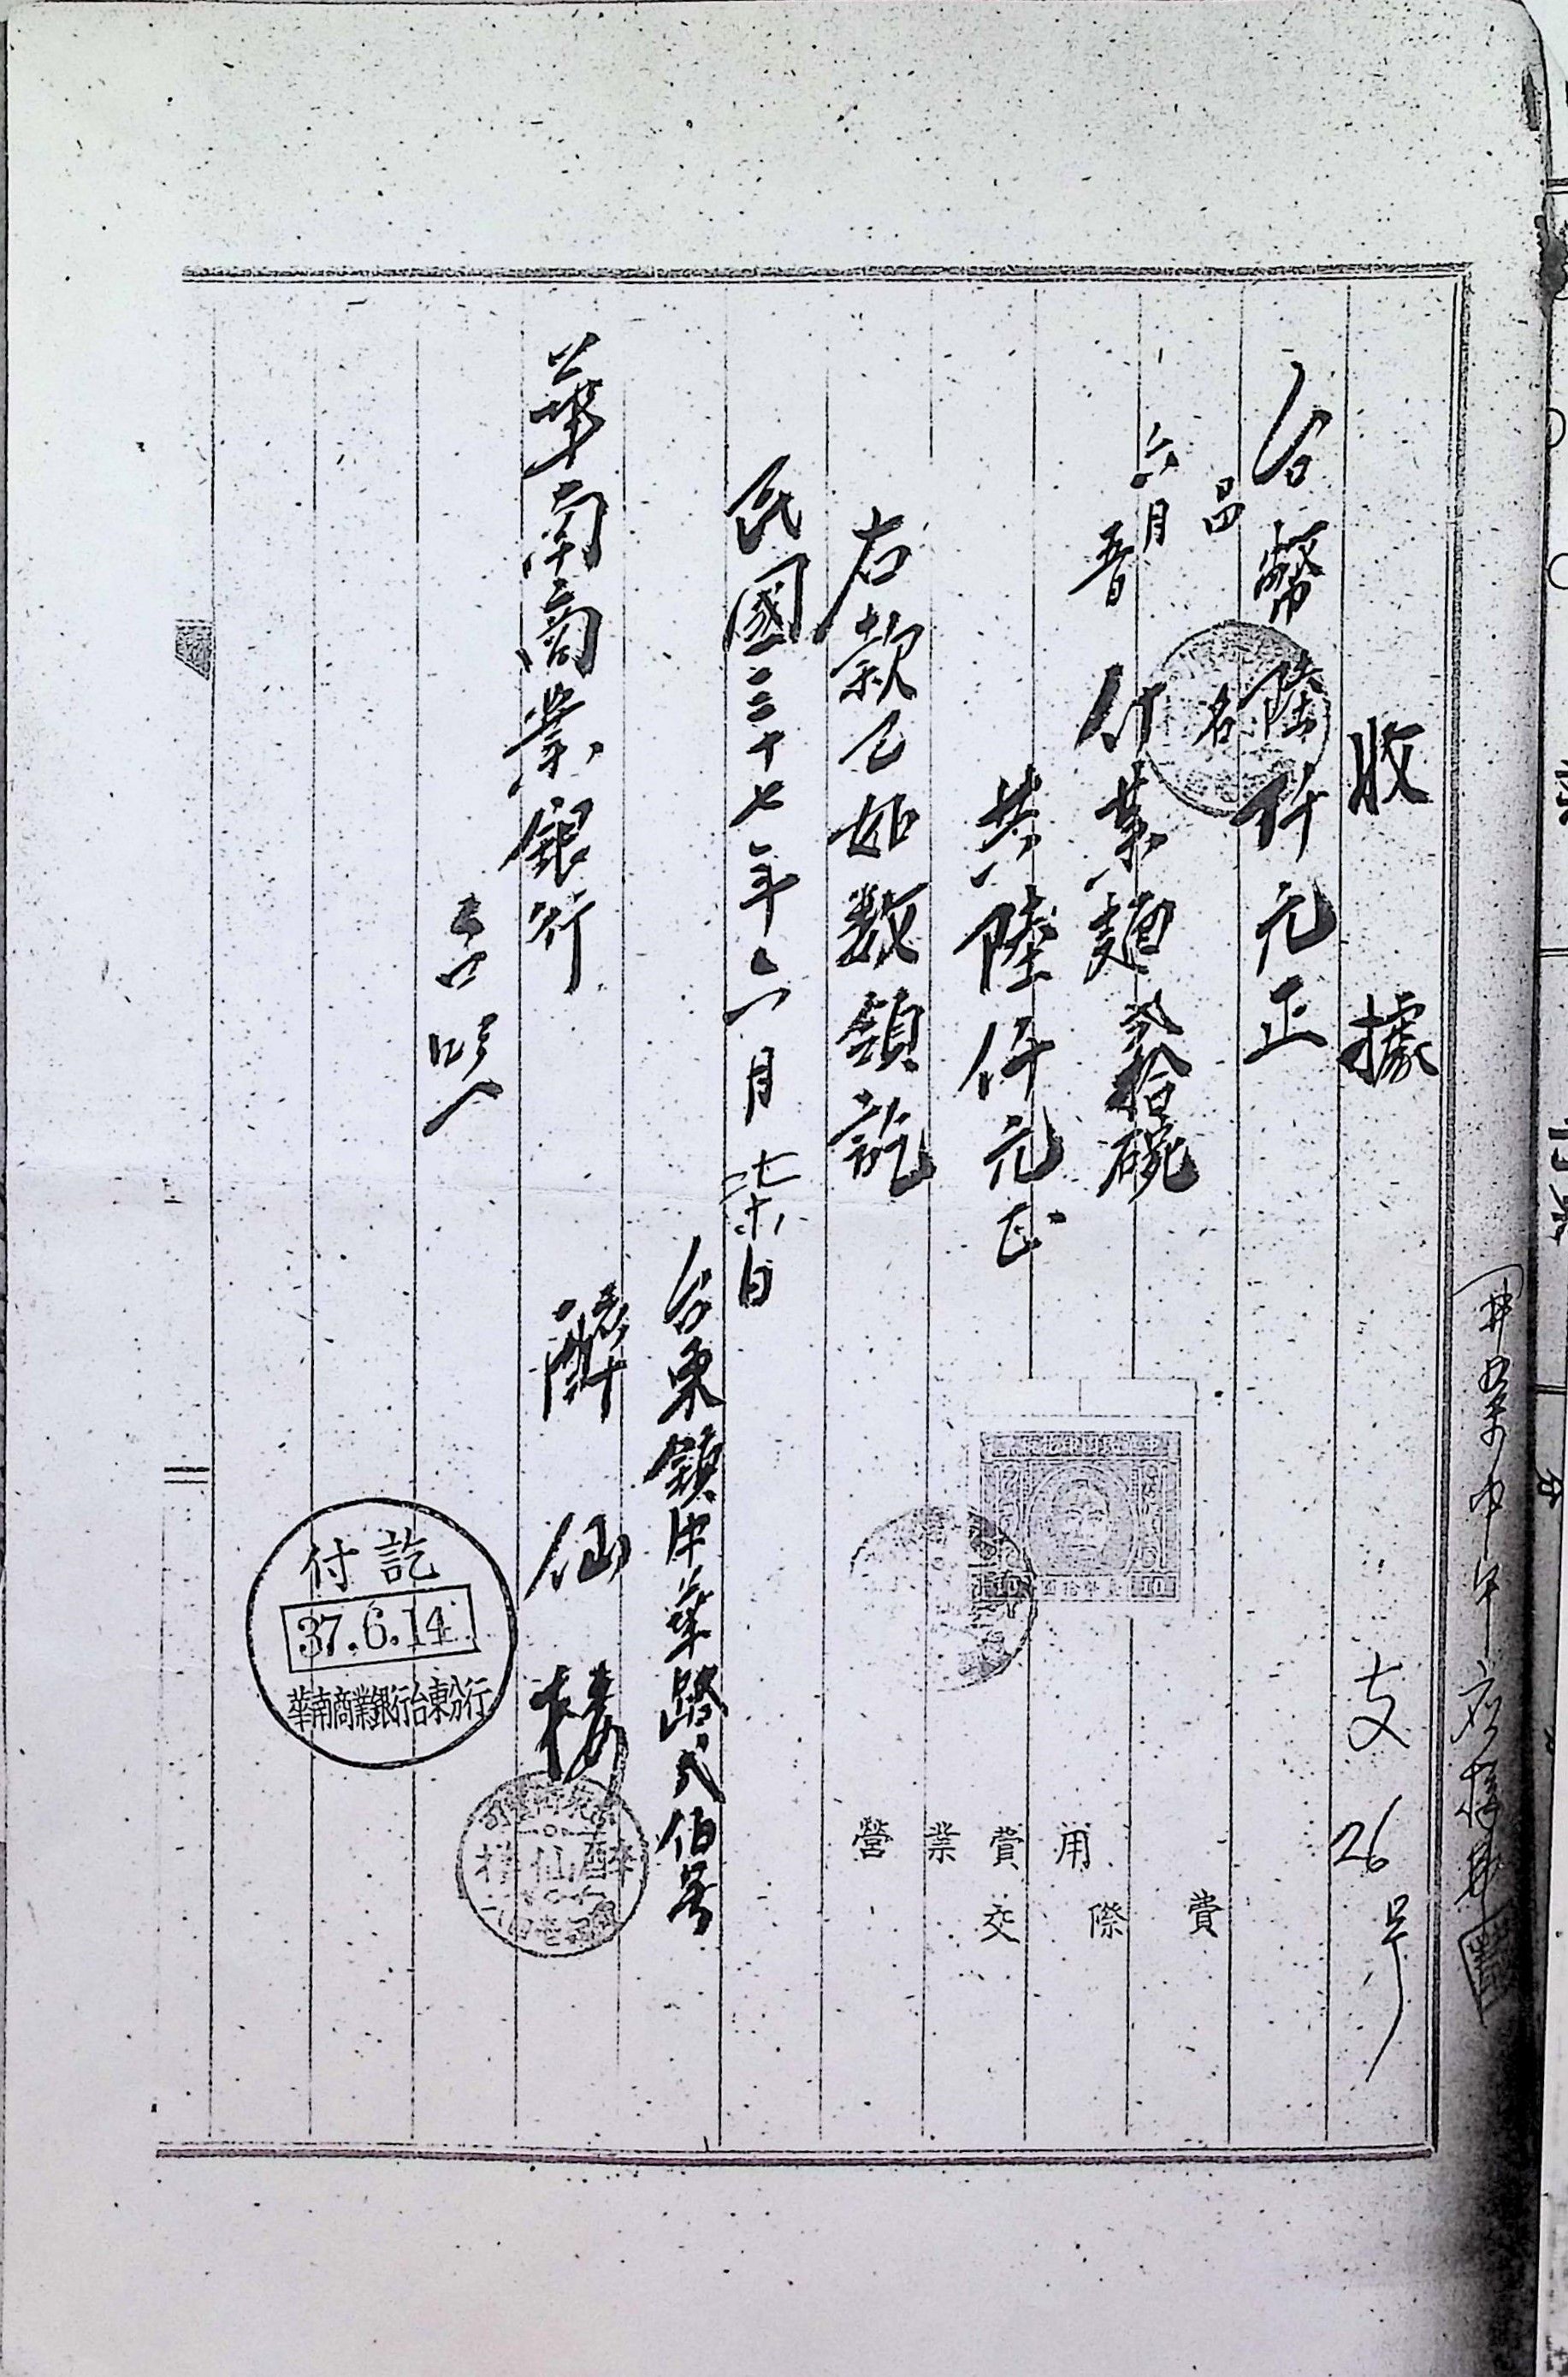 收據 支26号
台幣陸仟元正
品名
六月
五日 什菜麺弍拾碗
共陸仟元正
右款已如数領訖
民國三十七年六月七日
台東鎮中華路弍佰号
華南商業銀行 醉仙楼
台照
營業費用
交際費
付訖
37.6.14
華南商業銀行台東分行
醉仙楼
10 10